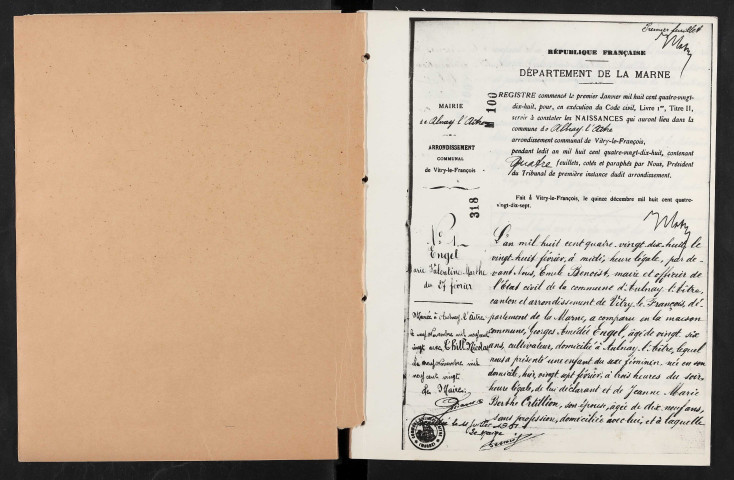 Premier feuillet
RÉPUBLIQUE FRANÇAISE
DÉPARTEMENT DE LA MARNE
MAIRIE
de Alnay l'Aitre
ARRONDISSEMENT
COMMUNAL
de Vitry-le-François
M 100
318
REGISTRE commencé le premier Janvier mil huit cent quatre-vingt-
dix-huit, pour, en exécution du Code civil, Livre 1er, Titre II,
servir à constater les NAISSANCES qui auront lieu dans la
commune de Alnay l'Aitre
arrondissement communal de Vitry-le-François,
pendant ledit an mil huit cent quatre-vingt-dix-huit, contenant
Quatre feuillets, cotés et paraphés par Nous, Président
du Tribunal de première instance dudit arrondissement.
Fait à Vitry-le-François, le quinze décembre mil huit cent quatre-
vingt-dix-sept.
No 1
Engel
Marie Valentine Marthe
du 27 février
Mariée à Aulnay l'Aitre
le neuf novembre mil neuf cent
vingt avec Nicolas
le neuf novembre mil
neuf cent vingt
Le Maire
L'an mil huit cent quatre-vingt-dix-huit, le
vingt huit février, à midi, heure légale, par de-
vant Nous, Emile Benoist, maire et officier de
l'état civil de la commune d'Aulnay l'Aitre,
canton et arrondissement de Vitry-le-François, dé-
partement de la Marne, a comparu en la maison
commune, Georges Amédée Engel, âgé de vingt-six
ans, cultivateur, domicilié à Aulnay l'Aitre, lequel
nous a présenté une enfant du sexe féminin, née en son
domicile, hier, vingt sept février, à trois heures du soir,
heure légale, de lui déclarant et de Jeanne Marie
Berthe Ortillion, son épouse, âgée de dix neuf ans,
sans profession, domiciliée avec lui, et à laquelle
le 11 juillet 1961